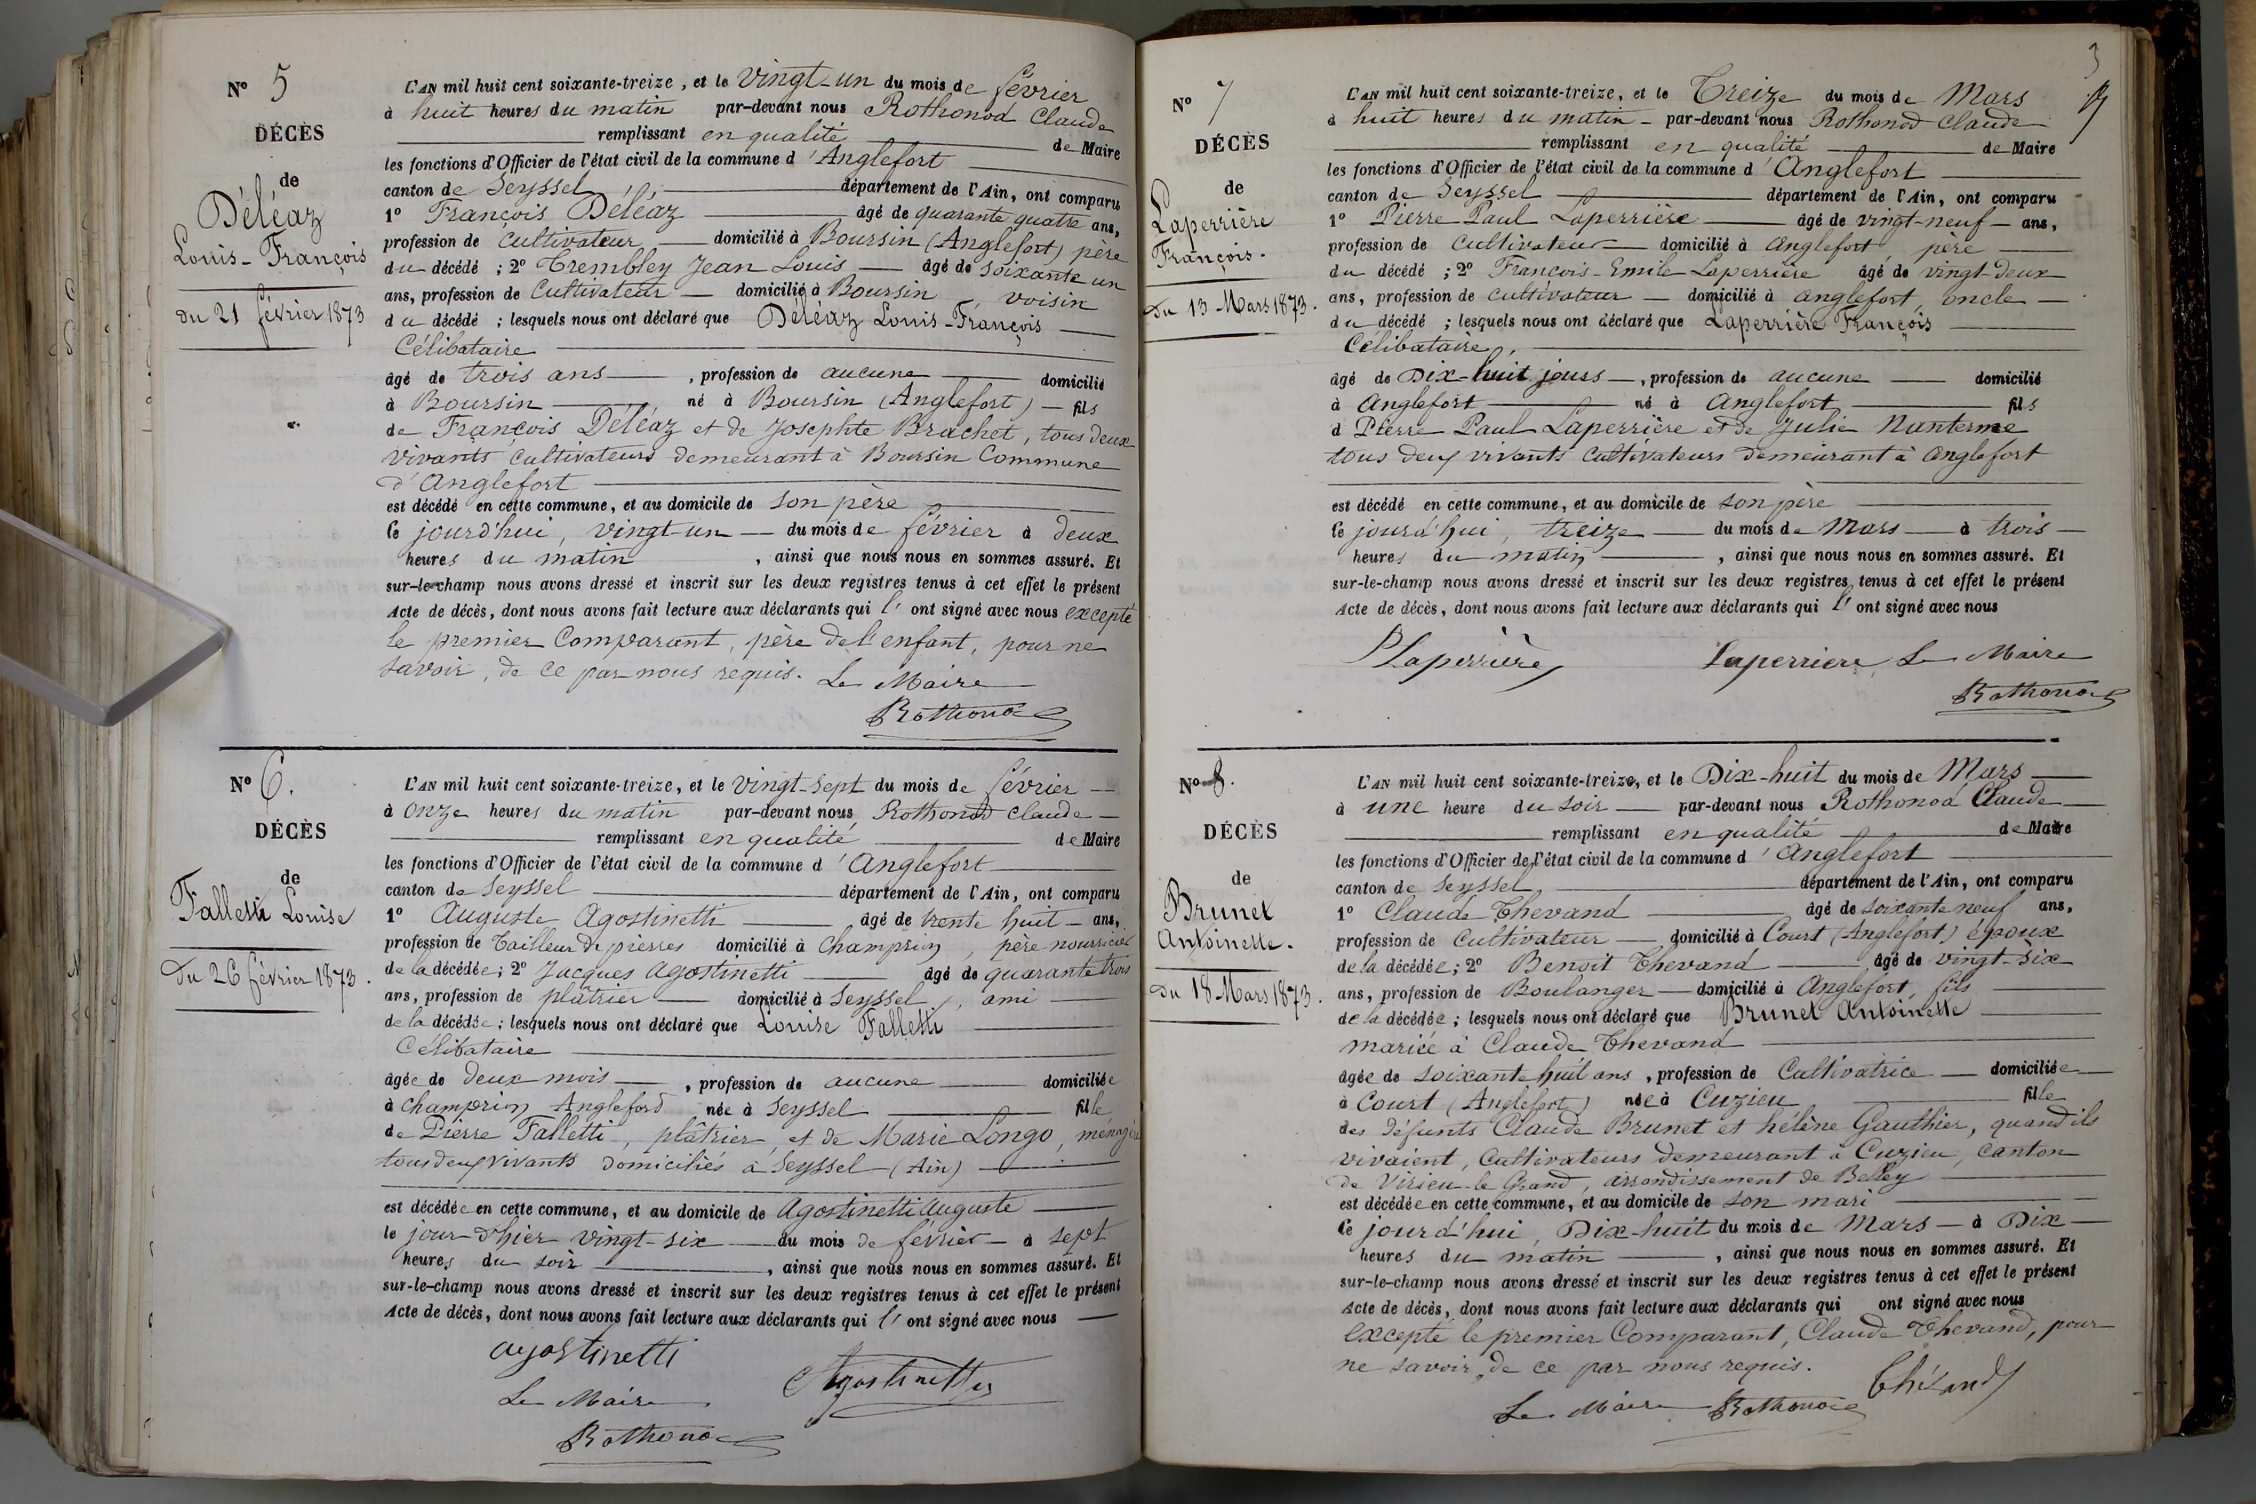 N° 5
DÉCÈS
de
Déléaz
Louis-François
du 21 février 1873
L'AN mil huit cent soixante-treize, et le vingt-un du mois de février
à huit heures du matin par-devant nous Rothonod Claude
remplissant en qualité de Maire
les fonctions d'Officier de l'état civil de la commune d'Anglefort
canton de Seyssel département de l'Ain, ont comparu
1° François Déléaz âgé de quarante quatre ans,
profession de cultivateur domicilié à Boursin (Anglefort) père
du décédé ; 2° Trembley Jean Louis âgé de soixante un
ans, profession de Cultivateur domicilié à Boursin, voisin
du décédé ; lesquels nous ont déclaré que Déléaz Louis-François
Célibataire
âgé de trois ans, profession de aucune domicilié
à Boursin né à Boursin (Anglefort) fils
de François Déléaz et de Josephte Brachet, tous deux
vivants cultivateurs demeurant à Boursin Commune
d'Anglefort
est décédé en cette commune, et au domicile de son père
le jourd'hui, vingt-un du mois de février à deux
heures du matin, ainsi que nous nous en sommes assuré. Et
sur-le-champ nous avons dressé et inscrit sur les deux registres tenus à cet effet le présent
Acte de décès, dont nous avons fait lecture aux déclarants qui l' ont signé avec nous excepté
le premier Comparant, père de l'enfant, pour ne
savoir, de ce par nous requis. Le Maire
Rothonod
N° 6.
DÉCÈS
de
Falletti Louise
Du 26 février 1873.
L'AN mil huit cent soixante-treize, et le vingt-sept du mois de février
à onze heures du matin par-devant nous Rothonod Claude
remplissant en qualité de Maire
les fonctions d'Officier de l'état civil de la commune d'Anglefort
canton de Seyssel département de l'Ain, ont comparu
1° Auguste Agostinetti âgé de trente huit ans,
profession de Tailleur de pierres domicilié à Champrion, père nourricier
de la décédée ; 2° Jacques Agostinetti âgé de quarante trois
ans, profession de plâtrier domicilié à Seyssel, ami
de la décédée ; lesquels nous ont déclaré que Louise Falletti
Célibataire
âgée de deux mois, profession de aucune domiciliée
à Champrion Angleford née à Seyssel fille
de Pierre Falletti, plâtrier, et de Marie Longo, ménagère
tous deux vivants domiciliés à Seyssel (Ain)
est décédée en cette commune, et au domicile de Agostinetti Auguste
le jour d'hier vingt-six du mois de février à sept
heures du soir, ainsi que nous nous en sommes assuré. Et
sur-le-champ nous avons dressé et inscrit sur les deux registres tenus à cet effet le présent
Acte de décès, dont nous avons fait lecture aux déclarants qui l' ont signé avec nous
agostinetti
Agostinetti
Le Maire
Rothonod
3
N° 7
DÉCÈS
de
Laperrière
François.
Du 13 Mars 1873.
L'AN mil huit cent soixante-treize, et le Treize du mois de Mars
à huit heures du matin par-devant nous Rothonod Claude
remplissant en qualité de Maire
les fonctions d'Officier de l'état civil de la commune d'Anglefort
canton de Seyssel département de l'Ain, ont comparu
1° Pierre Paul Laperrière âgé de vingt-neuf ans,
profession de cultivateur domicilié à Anglefort, père
du décédé ; 2° François-Emile Laperrière âgé de vingt-deux
ans, profession de cultivateur domicilié à Anglefort, oncle
du décédé ; lesquels nous ont déclaré que Laperrière François
Célibataire,
âgé de Dix-huit jours, profession de aucune domicilié
à Anglefort né à Anglefort fils
d Pierre Paul Laperrière et de Julie Nanterme
tous deux vivants cultivateurs demeurant à Anglefort
est décédé en cette commune, et au domicile de son père
le jourd'hui, treize du mois de Mars à trois
heures du matin, ainsi que nous nous en sommes assuré. Et
sur-le-champ nous avons dressé et inscrit sur les deux registres tenus à cet effet le présent
Acte de décès, dont nous avons fait lecture aux déclarants qui l' ont signé avec nous
P Laperrière Laperriere Le Maire
Rothonod
N° 8.
DÉCÈS
de
Brunet
Antoinette.
Du 18 Mars 1873.
L'AN mil huit cent soixante-treize, et le Dix-huit du mois de Mars
à une heure du soir par-devant nous Rothonod Claude
remplissant en qualité de Maire
les fonctions d'Officier de l'état civil de la commune d'Anglefort
canton de Seyssel département de l'Ain, ont comparu
1° Claude Thevand âgé de soixante neuf ans,
profession de Cultivateur domicilié à Court (Anglefort) époux
de la décédée ; 2° Benoit Thevand âgé de vingt-six
ans, profession de Boulanger domicilié à Anglefort, fils
de la décédée ; lesquels nous ont déclaré que Brunet Antoinette
mariée à Claude Thevand
âgée de soixante huit ans, profession de Cultivatrice domiciliée
à Court (Anglefort) née à Cuzieu fille
des défunts Claude Brunet et hélène Gauthier, quand ils
vivaient, Cultivateurs demeurant à Cuzieu, canton
de Virieu-le Grand, arrondissement de Belley
est décédée en cette commune, et au domicile de son mari
le jourd'hui, Dix-huit du mois de Mars à Dix
heures du matin, ainsi que nous nous en sommes assuré. Et
sur-le-champ nous avons dressé et inscrit sur les deux registres tenus à cet effet le présent
Acte de décès, dont nous avons fait lecture aux déclarants qui ont signé avec nous
excepté le premier Comparant, Claude Thevand, pour
ne savoir, de ce par nous requis. Thévand
Le Maire Rothonod